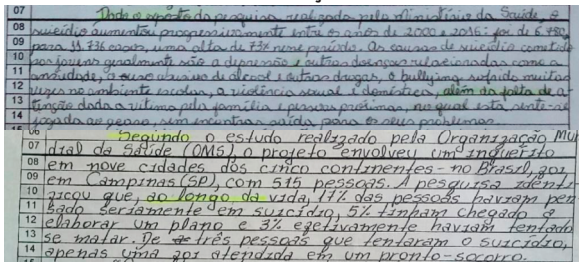 07 Dado o exposto da pesquisa realizada pelo Ministério da Saúde, o
08 suicídio aumentou progressivamente entre os anos de 2000 e 2016: foi de 6.780
09 para 11.736 casos, uma alta de 73% nesse período. As causas de suicídio cometido
10 por jovens geralmente são a depressão e outras doenças relacionadas com a
11 ansiedade, o uso abusivo de álcool e outras drogas, o bullying sofrido muitas
12 vezes no ambiente escolar, a violência sexual e doméstica, além da falta de a-
13 tenção dada a vítima pela família e pessoas próximas, no qual esta sente-se
14 jogada ao acaso, sem encontrar saída para os seus problemas.
15
06 Segundo o estudo realizado pela Organização Mun
07 dial da Saúde (OMS), o projeto envolveu um inquérito
08 em nove cidades dos cinco continentes - no Brasil, foi
09 em Campinas (SP), com 515 pessoas. A pesquisa identi
10 ficou que, ao longo da vida, 17% das pessoas haviam pen
11 sado seriamente em suicídio, 5% tinham chegado a
12 elaborar um plano e 3% efetivamente haviam tentado
13 se matar. De três pessoas que tentaram o suicídio,
14 apenas uma foi atendida em um pronto-socorro.